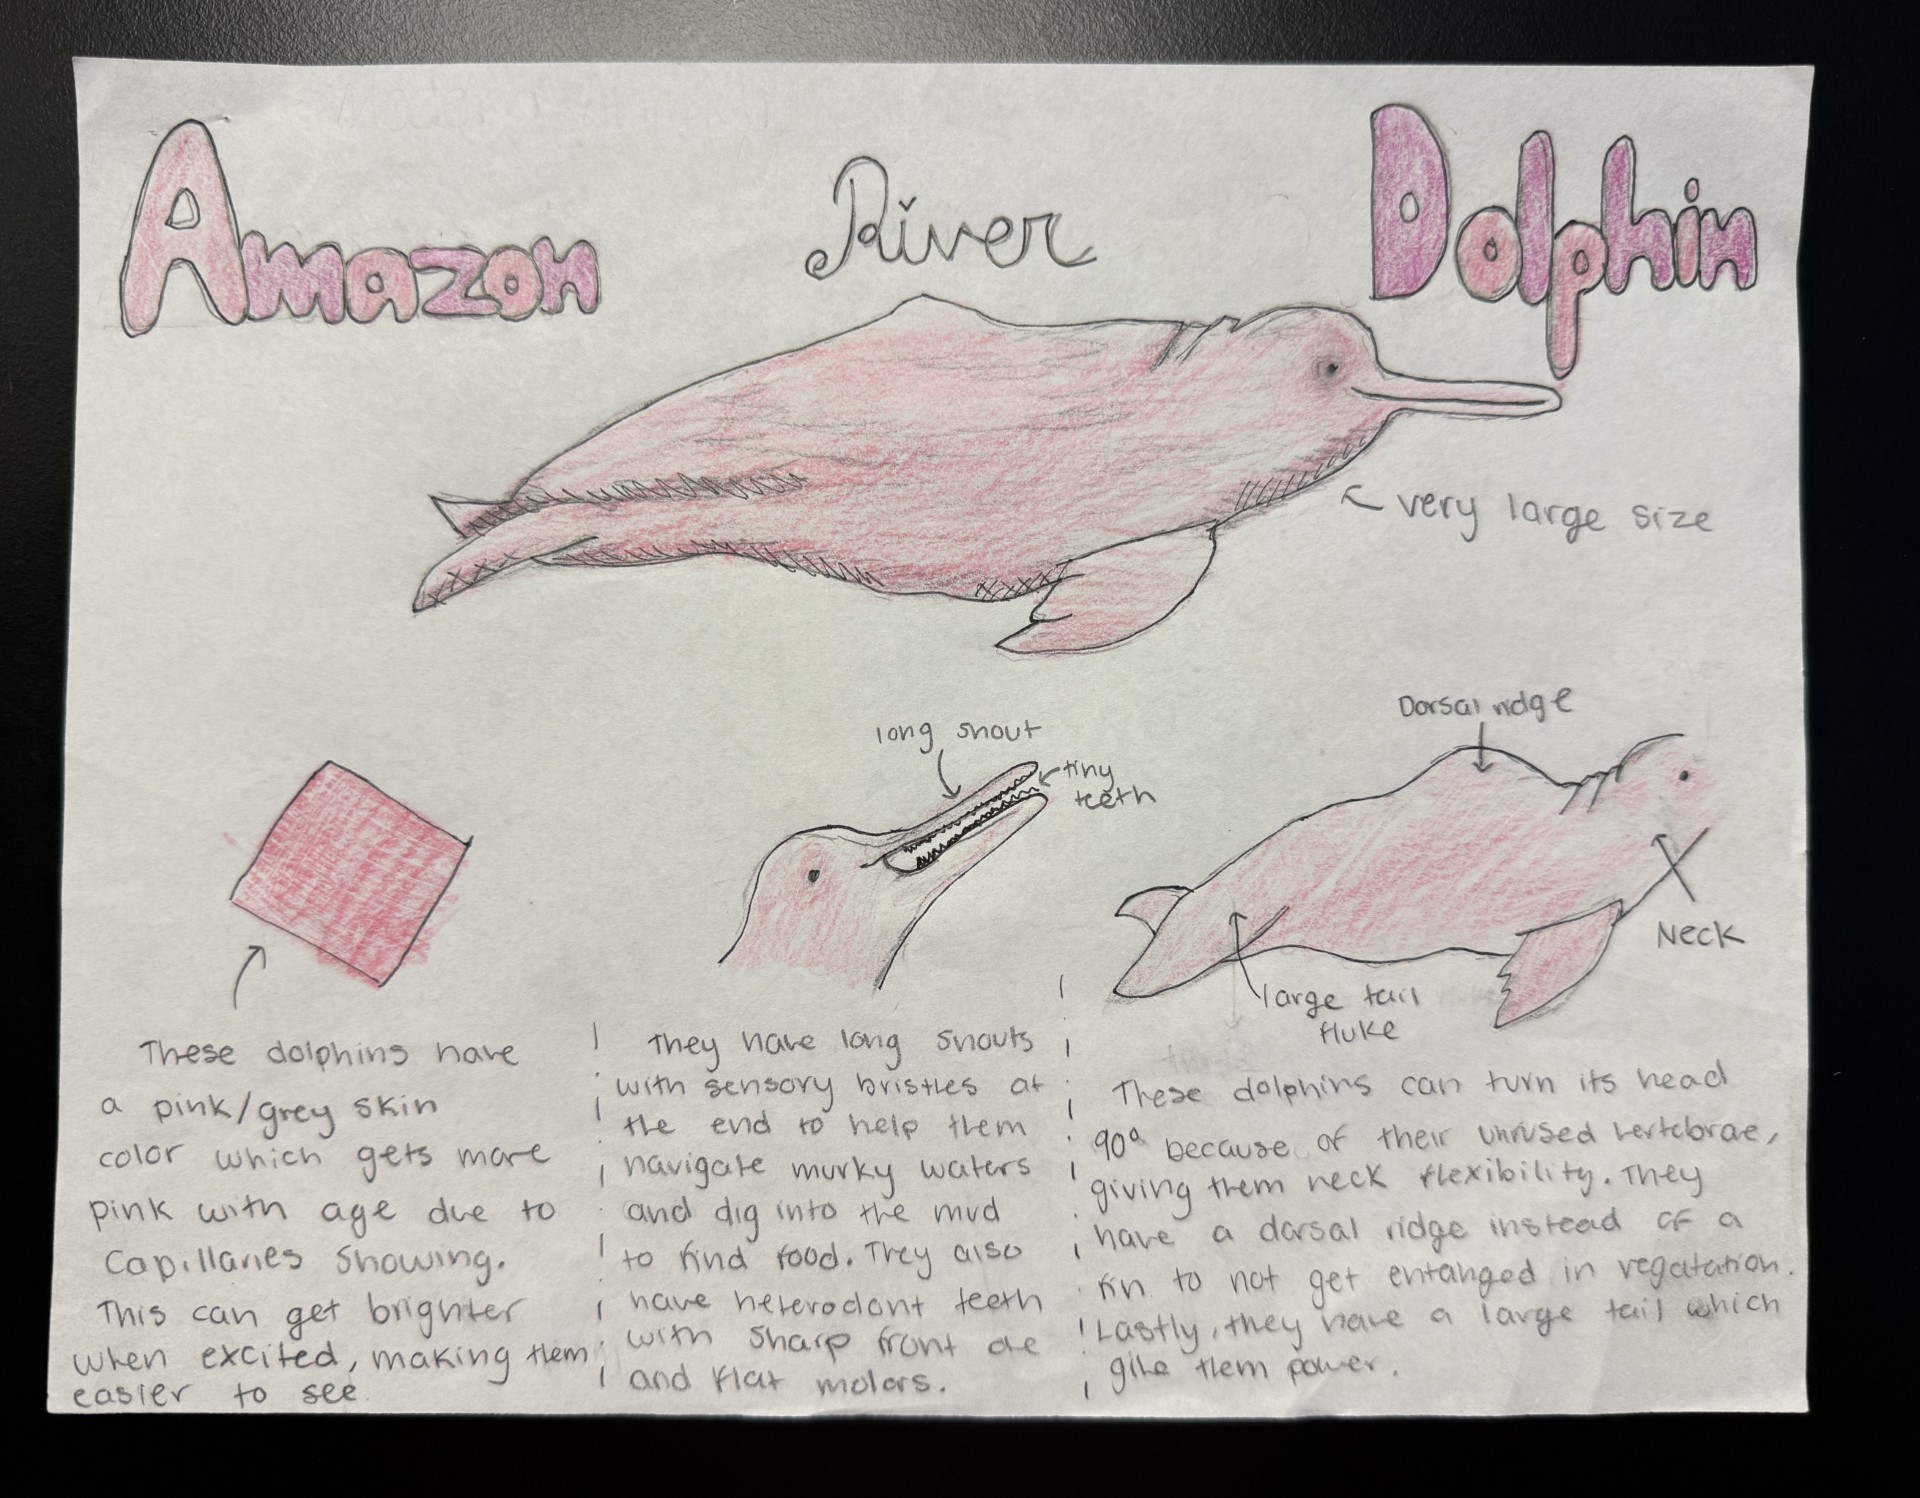 Amazon River Dolphin
← very large size
long snout
tiny
teeth
Dorsal ridge
Neck
large tail
fluke
These dolphins have
a pink/grey skin
color which gets more
pink with age due to
Capillaries showing.
This can get brighter
when excited, making them
easier to see
They have long snouts
with sensory bristles at
the end to help them
navigate murky waters
and dig into the mud
to find food. They also
have heterodont teeth
with sharp front one
and flat molars.
These dolphins can turn its head
90° because of their unfused vertebrae,
giving them neck flexibility. They
have a dorsal ridge instead of a
fin to not get entanged in vegatation.
Lastly, they have a large tail which
give them power.